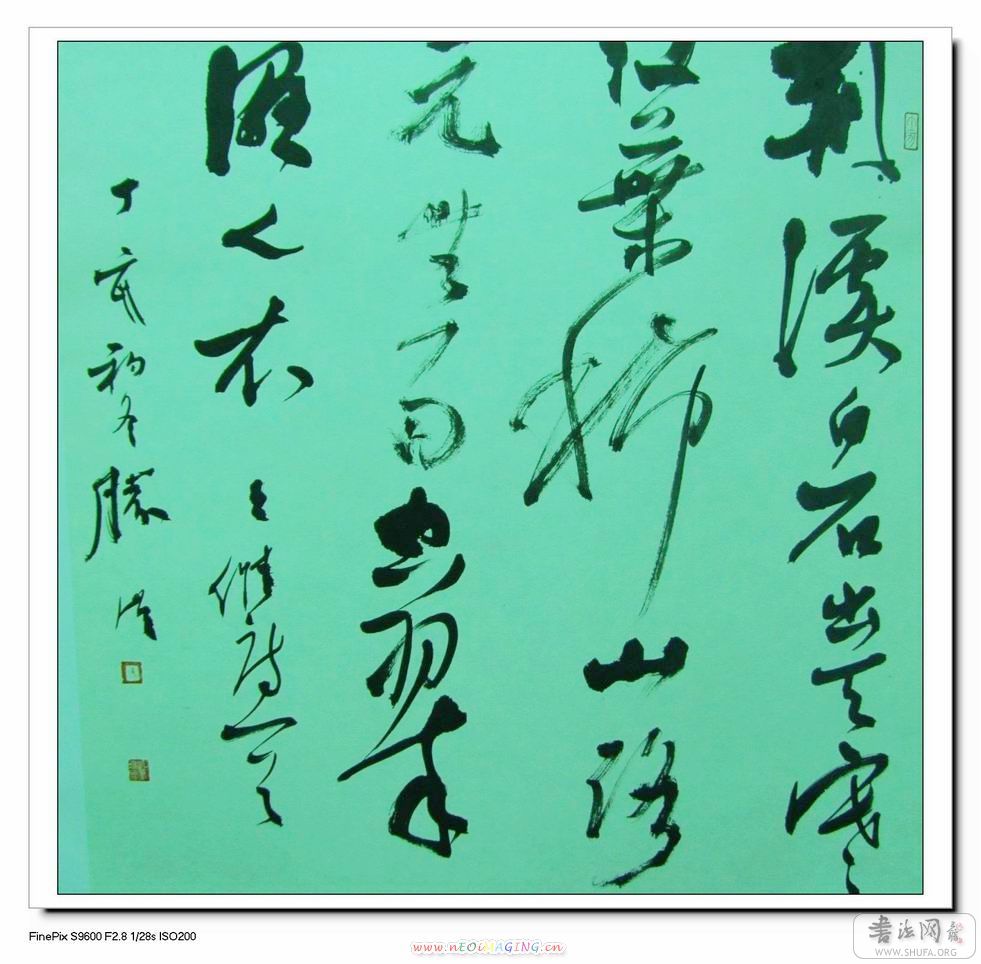 荆溪白石出天寒
红葉稀山路
元無雨空翠
濕人衣 王維詩一首
丁亥初冬
FinePix S9600 F2.8 1/28s ISO200
www.nEOiMAGING.cn
書法网
WWW.SHUFA.ORG